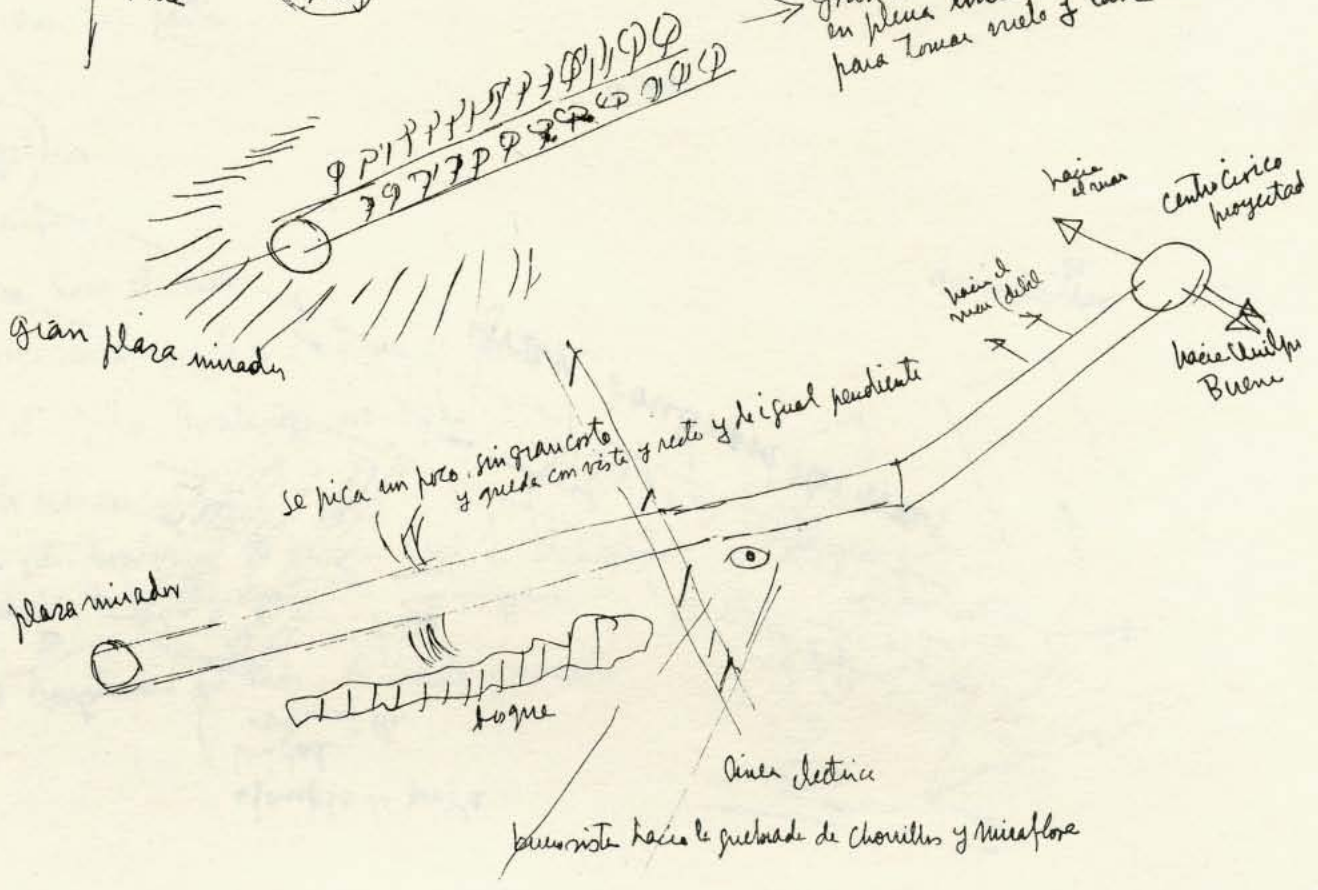 en plena
para tomar vuelo y
gran plaza mirador
hacia
el mar
centro civico
proyectad
hacia el
mar (debil
hacia Quilpu
Buena
se pica un poco, sin gran costo
y queda con vista y recto y de igual pendiente
plaza mirador
bosque
linea electrica
buena vista hacia la quebrada de Chorrillos y Miraflore